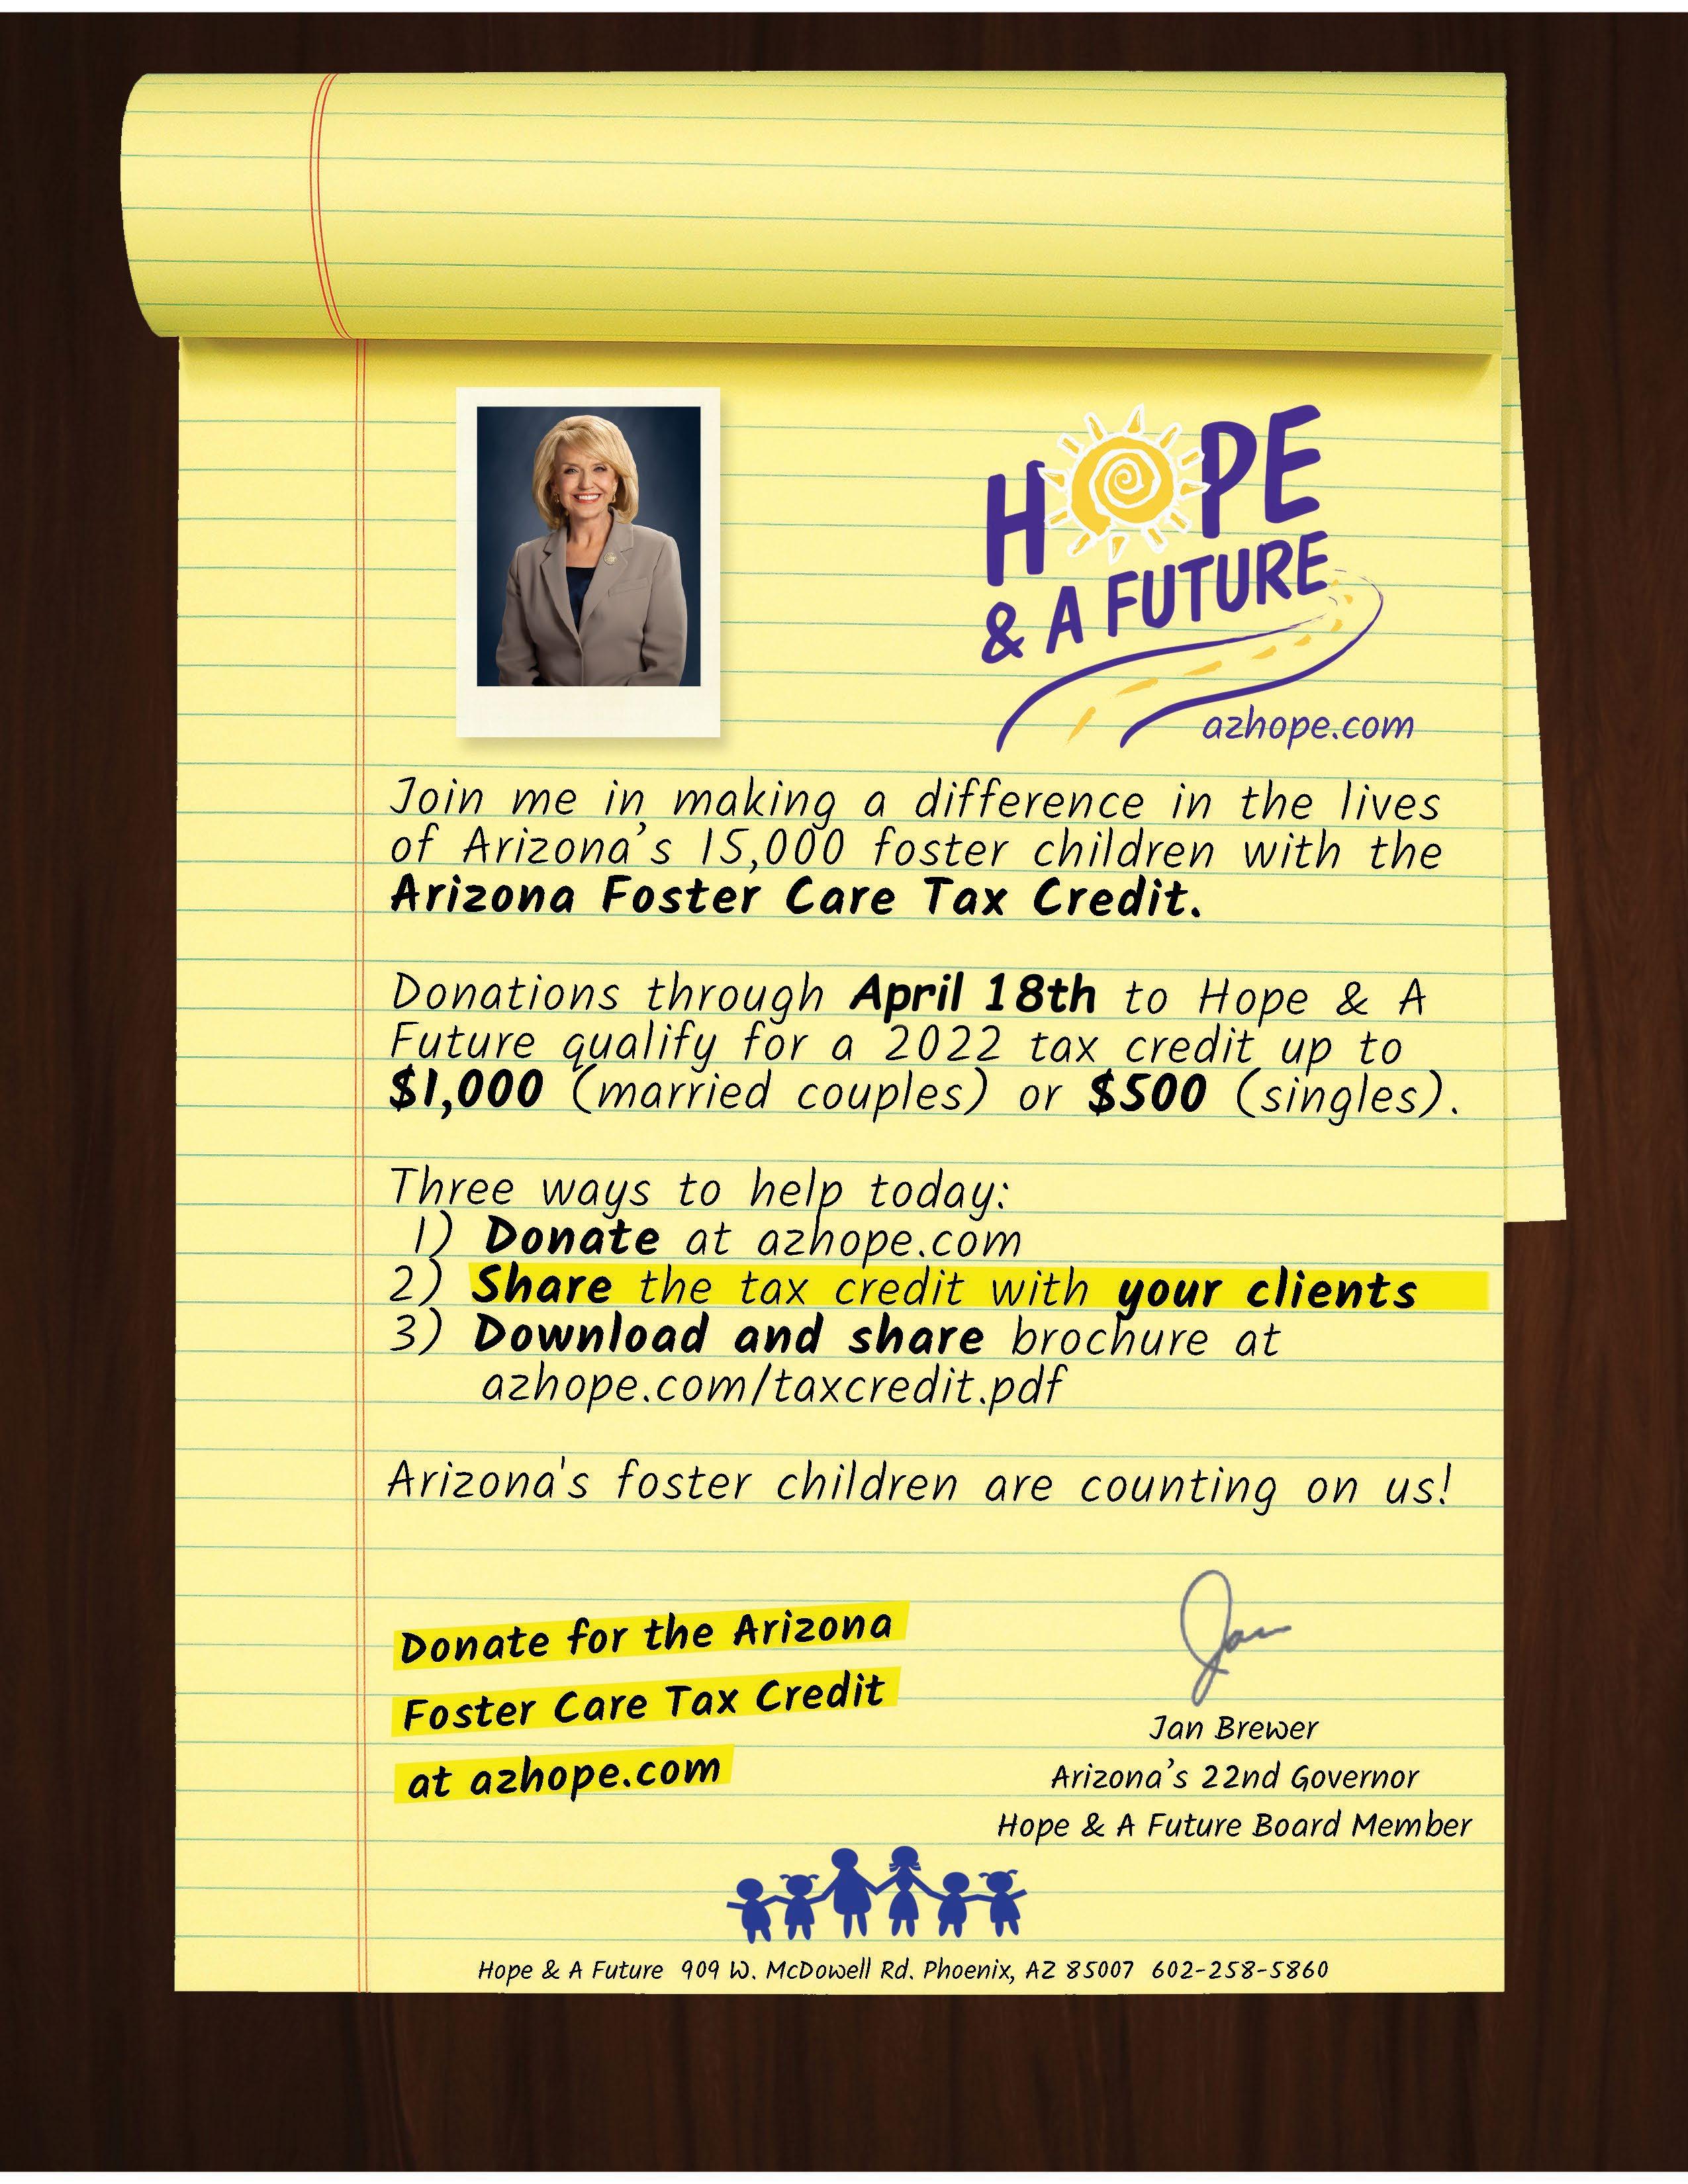 HOPE
& A FUTURE
azhope.com
Join me in making a difference in the lives
of Arizona's 15,000 foster children with the
Arizona Foster Care Tax Credit.
Donations through April 18th to Hope & A
Future qualify for a 2022 tax credit up to
$1,000 (married couples) or $500 (singles).
Three ways to help today:
1) Donate at azhope.com
2) Share the tax credit with your clients
3) Download and share brochure at
azhope.com/taxcredit.pdf
Arizona's foster children are counting on us!
Donate for the Arizona
Foster Care Tax Credit
at azhope.com
Jan
Jan Brewer
Arizona's 22nd Governor
Hope & A Future Board Member
Hope & A Future 909 W. McDowell Rd. Phoenix, AZ 85007 602-258-5860